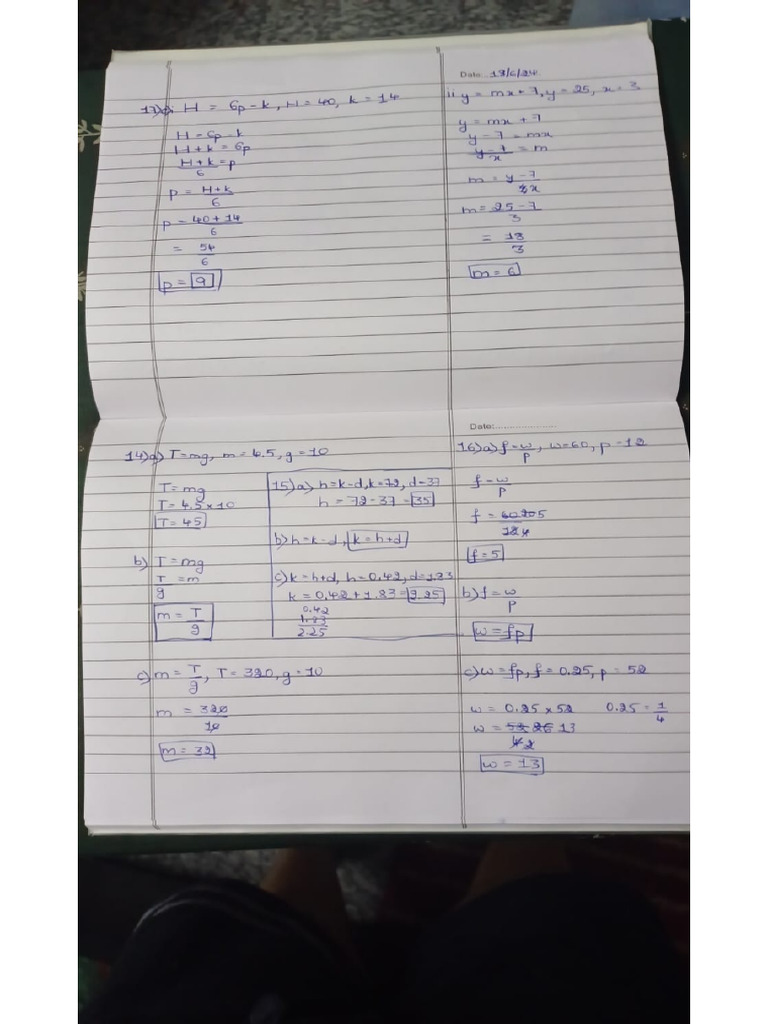 Date: 18/6/24
17)a)i H = 6p-k, H=40, k=14
H=6p-k
H+k = 6p
H+k/6 = p
p = H+k/6
p = 40+14/6
= 54/6
p = 9
ii y = mx+7, y=25, x=3
y = mx+7
y-7 = mx
y-7/x = m
m = y-7/x
m = 25-7/3
= 18/3
m = 6
14)a) T=mg, m=4.5, g=10
T=mg
T= 4.5×10
T= 45
b) T=mg
T/g = m
m = T/g
c) m = T/g, T = 320, g=10
m = 320/10
m = 32
15)a) h=k-d, k=72, d=37
h = 72-37 = 35
b) h=k-d, k = h+d
c) k=h+d, h=0.42, d=1.83
k = 0.42+1.83 = 2.25
0.42
1.83
2.25
Date:....................
16)a) f=w/p, w=60, p=12
f=w/p
f = 60 5/12
f=5
b) f=w/p
w = fp
c) w=fp, f = 0.25, p = 52
w = 0.25×52 0.25 = 1/4
w = 52 26 13
4 2
w = 13